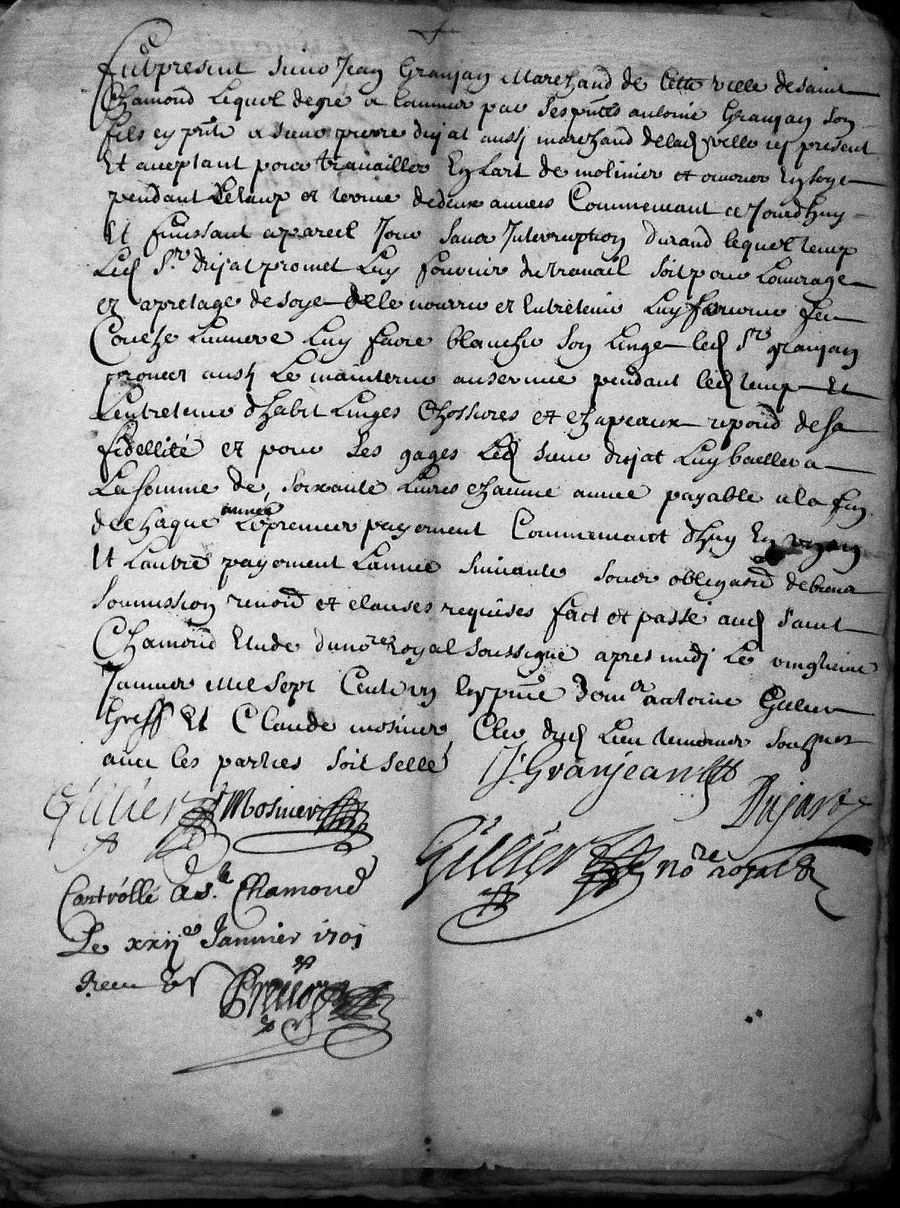 Fut present sieur Jean Granjan Marchand de cette ville de saint
Chamond lequel de gre a commis par ses pntes antoine Granjan son
fils cy pnt a sieur pierre dujat aussy marchand de lad ville icy present
Et acceptant pour travailler En lart de molinier et ouvrier En soye
pendant Le temp et terme de deux annees Commencant ce Jourdhuy
Et finissant a pareil Jour sans Interruption durand lequel temp
Led Sr dujat promet Luy fournir du travail soit pour Louvrage
et apretage de soye de le nourrir et Entretenir Luy fournir feu
Couche Lumiere Luy faire blanchir son Linge led Sr granjan
promet aussy Le maintenir au service pendant led temp Et
Lentretenir dhabit Linges Chossures et chapeaux repond de sa
fidellité et pour ses gages Led sieur dujat Luy baillera
La somme de soixante Livres chacune annee payable a la fin
de chaque année Le premier payement Commencant dhuy En
Et Lautre payement Lannee suivante sous obligaon de biens
soumission renon et clauses requises fait et passé aud saint
Chamond Etude du nore Royal soussigné apres midy Le vingtieme
Janvier Mil sept Cent un En pnce de mr antoine Gillier
greff Et Claude mosnier Clerc dud Lieu temoins soussignes
avec les parties soit sellé
J. Granjean
Gillier Mosnier Dujast
Gillier nore royal
Controllé a St Chamond
Le xxije Janvier 1701
Receu